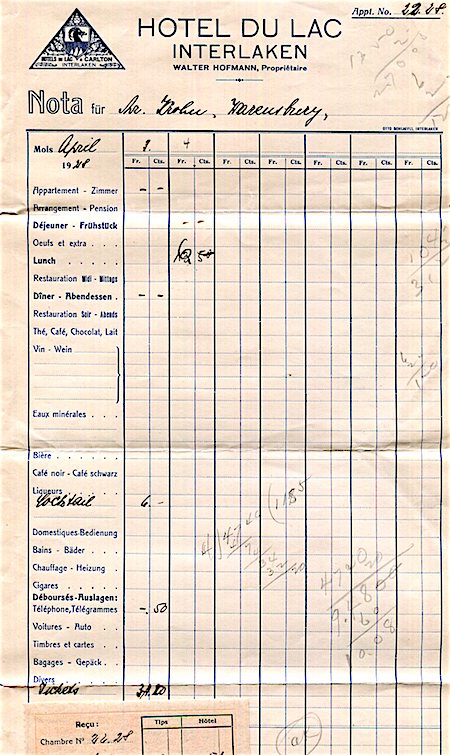 Appt. No. 22.28.
HOTELS DU LAC & CARLTON
INTERLAKEN
HOTEL DU LAC
INTERLAKEN
WALTER HOFMANN, Propriétaire
Nota für Mr. Krohn,
OTTO SCHLAEFLI, INTERLAKEN
Mois April 3. 4
1928 Fr. Cts. Fr. Cts. Fr. Cts. Fr. Cts. Fr. Cts. Fr. Cts. Fr. Cts.
Appartement - Zimmer - -
Arrangement - Pension
Déjeuner - Frühstück - -
Oeufs et extra . . .
Lunch . . . . . 12 50
Restauration Midi - Mittags
Dîner - Abendessen . - -
Restauration Soir - Abends
Thé, Café, Chocolat, Lait
Vin - Wein
Eaux minérales . . . .
Bière . . . . .
Café noir - Café schwarz
Liqueurs . . . . .
Cocktail 6.-
Domestiques-Bedienung
Bains - Bäder . . . .
Chauffage - Heizung .
Cigares . . . . .
Déboursés-Auslagen:
Téléphone, Télégrammes -.50
Voitures - Auto . . .
Timbres et cartes . . .
Bagages - Gepäck . . .
Divers . . . . .
Tickets 31.20
Reçu: Tips Hôtel
Chambre No 22.28